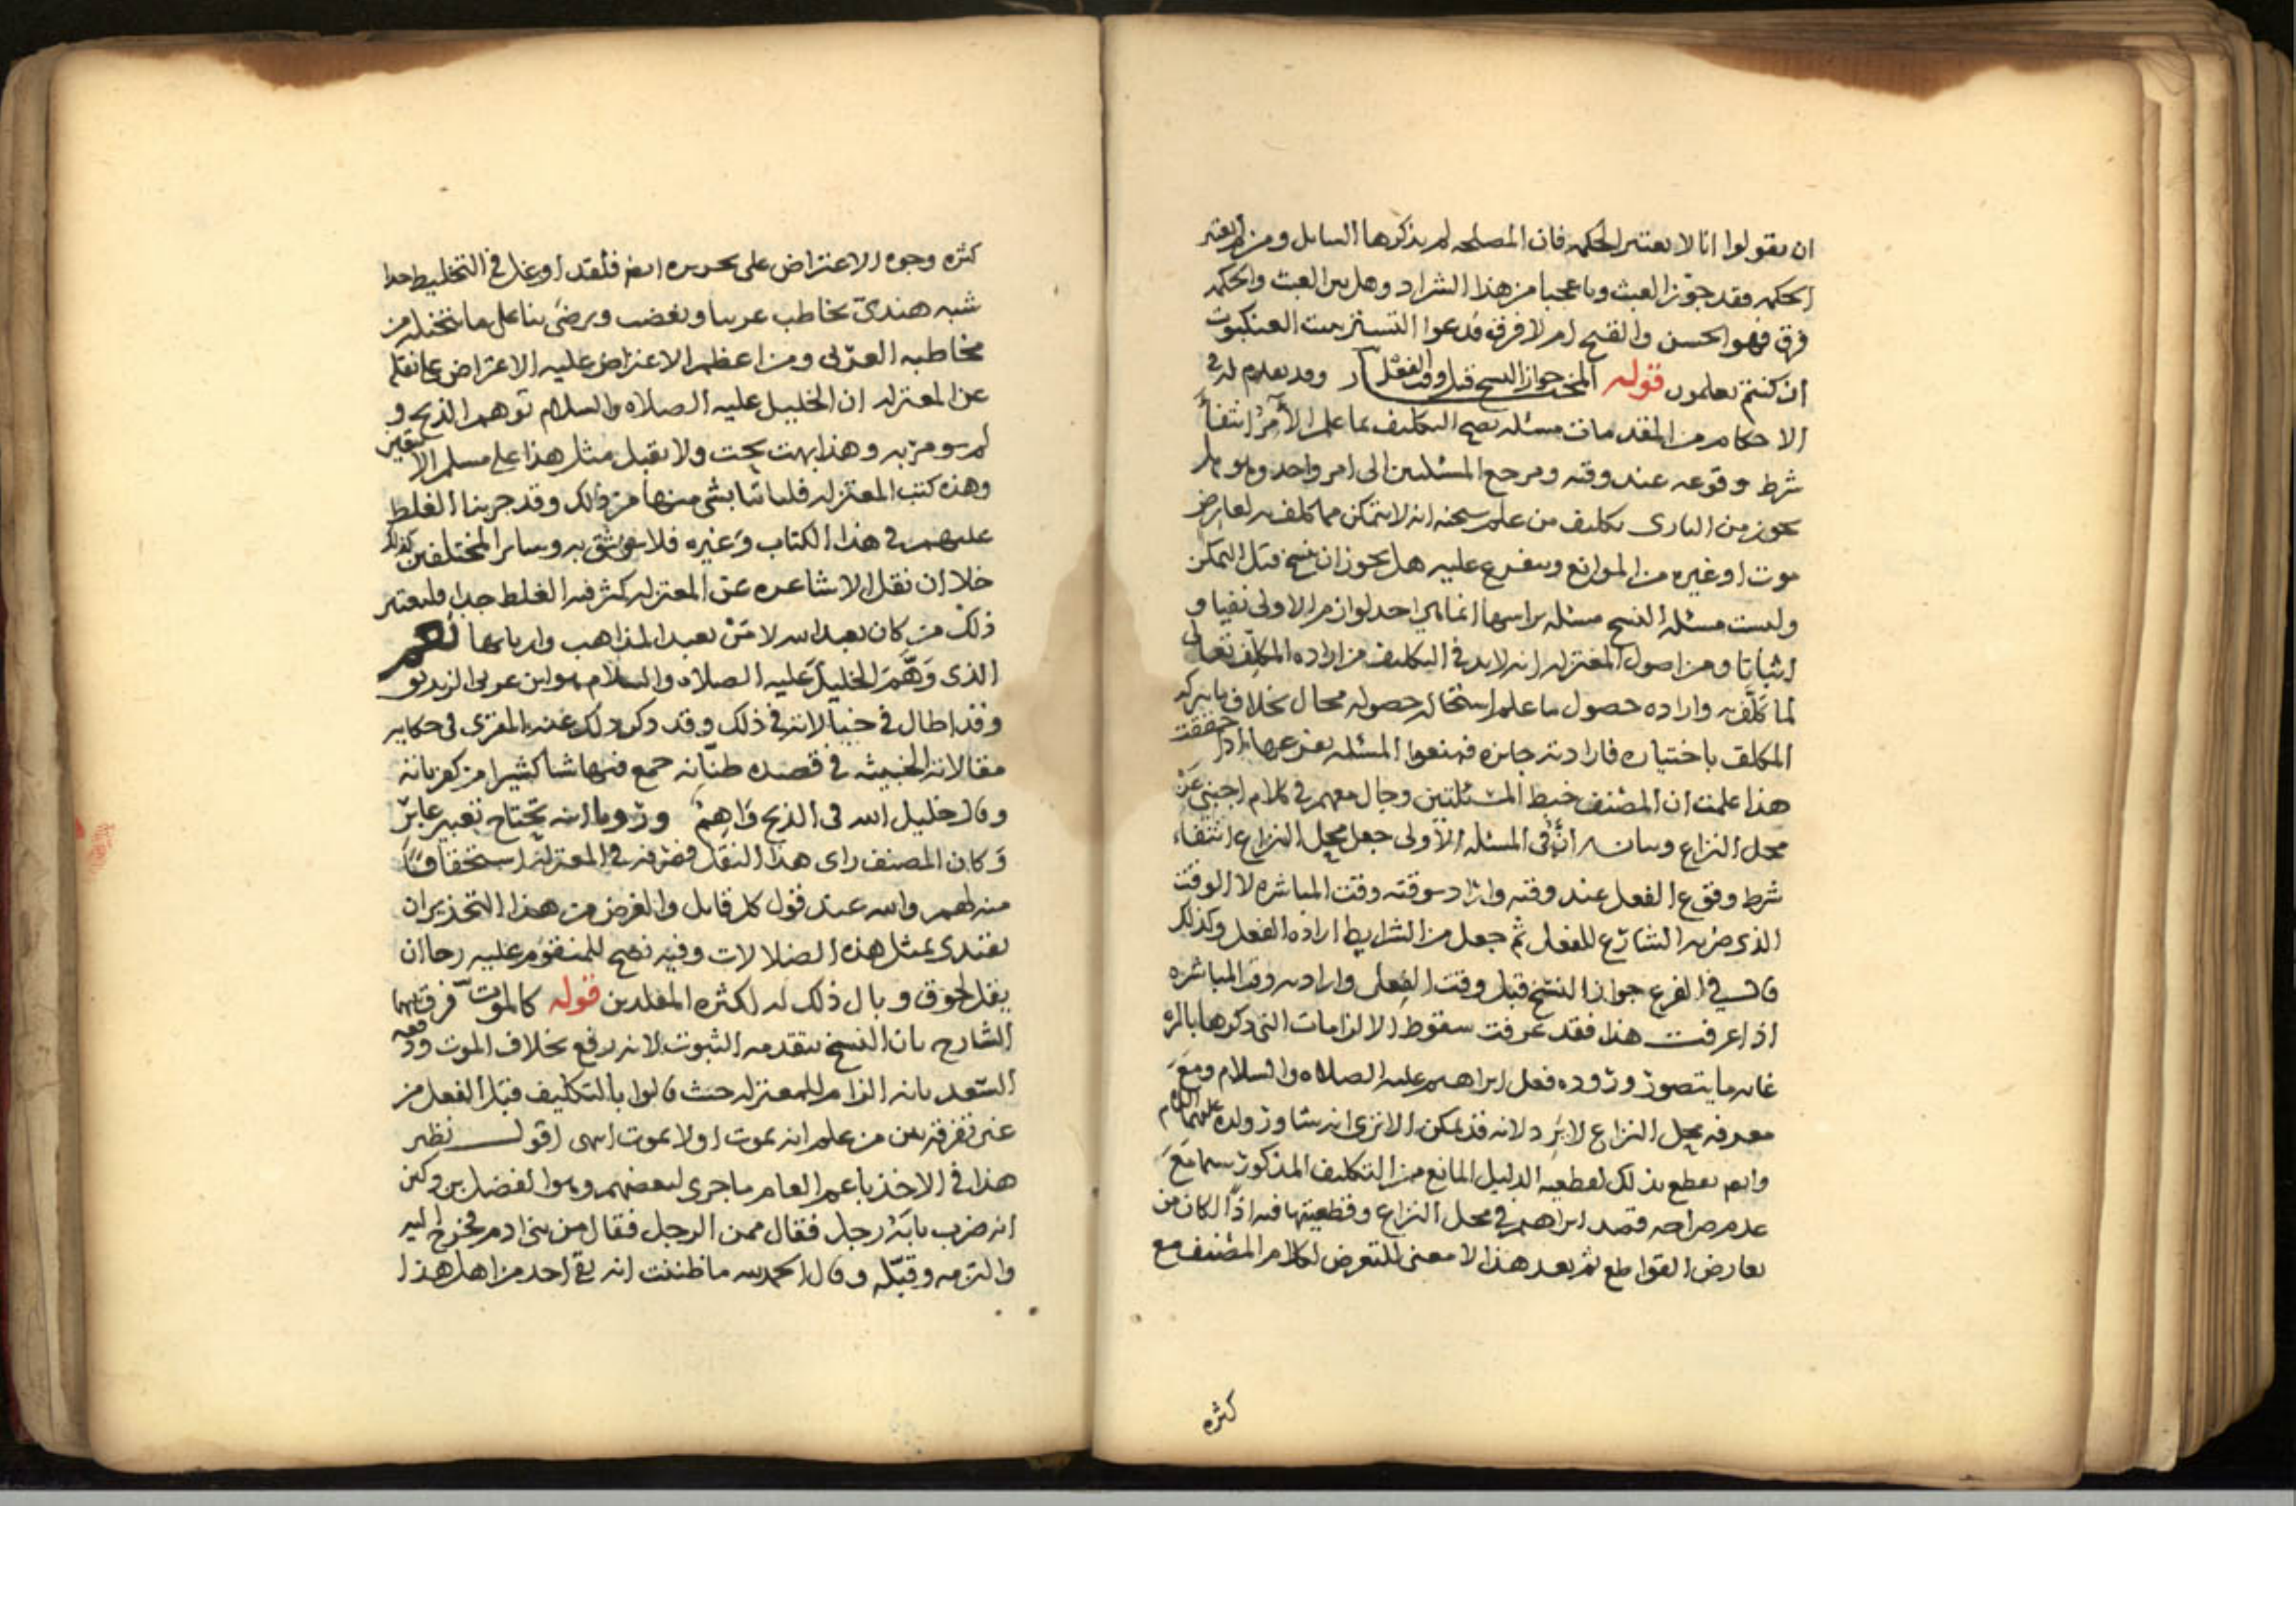 ان يقولوا انا لا نعتبر الحكمه فان المصلحه لم يذكرها السايل ومن لم يعتبر
الحكمه فقد جوّز العبث ويا عجبا من هذا الشراد وهل بين العبث والحكمه
فرق فهو الحسن والقبح ام لا فرق فدعوا التستر ببيت العنكبوت
ان كنتم تعلمون قوله المختار جواز النسخ قبل وقت الفعل وقد تقدم له في
الاحكام من المقدمات مسئله يصح التكليف بما علم الآمر انتفا
شرط وقوعه عند وقته ومرجع المسئلتين الى امر واحد وهو هل
يجوز من البارى تكليف من علم سبحنه انه لا يتمكن مما كلف به لعارض
موت او غيره من الموانع ويتفرع عليه هل يجوز ان ينسخ قبل التمكن
وليست مسئله النسخ مسئله براسها انما هي احد لوازم الاولى نفيا و
اثباتا ومن اصول المعتزله انه لابد في التكليف من اراده المكلِّف تعالى
لما كلّف به واراده حصول ما علم استحاله حصوله محال بخلاف ما تركه
المكلف باختياره فارادته جايزه فمنعوا المسئله بفرعها اذا حققت
هذا علمت ان المصنف خبط المسئلتين وجال معهم في كلام اجنبي عن
محل النزاع وبيانه انّه في المسئله الأولى جعل محل النزاع انتفاء
شرط وقوع الفعل عند وقته واراد بوقته وقت المباشره لا الوقت
الذى ضربه الشارع للفعل ثم جعل من الشرايط اراده الفعل وكذلك
قال في الفرع جواز النسخ قبل وقت الفعل واراد به وقت المباشره
اذا عرفت هذا فقد عرفت سقوط الالزامات التى ذكرها بالمره
غايه ما يتصور وروده فعل ابراهيم عليه الصلاه والسلام ومع
معرفه محل النزاع لا يرد لانه قد يمكن الا ترى انه شاور ولده عليهما السلام
وانهم بقطع بذلك لقطعيه الدليل المانع من التكليف المذكور سيما مع
عدم صراحه قصه ابراهيم في محل النزاع وقطعيتها فيه اذًا لكان من
تعارض القواطع ثم بعد هذا لا معنى للتعرض لكلام المصنف مع
كثره
كثره وجوه الاعتراض على تحريره فلقد اوغل في التخليط جدا
شبه هندىّ يخاطب عربيا ويغضب ويرضى بنا على ما يتخيله من
مخاطبه العربى ومن اعظم الاعتراض عليه الاعتراض على نقله
عن المعتزله ان الخليل عليه الصلاه والسلام توهم الذبح و
لم يومر به وهذا بهت بحت ولا يقبل مثل هذا على مسلم الا بيقين
وهذه كتب المعتزله فلياتنا بشى منها من ذلك وقد جربنا الغلط
عليهم في هذا الكتاب وغيره فلا نثق به وساير المختلفين كذلك
خلا ان نقل الاشاعره عن المعتزله كثر فيه الغلط جدا فليعتبر
ذلك من كان يعبد الله لا مَن يعبد المذاهب واربابها نعم
الذى وَهَّمَ الخليلَ عليه الصلاه والسلام هو ابن عربى الزنديق
وقد اطال في خيالاته في ذلك وقد ذكر ذلك عنه المقرى في حكايه
مقالاته الخبيثه في قصيده طنّانه جمع فيها شيا كثيرا من كفرياته
وقال خليل الله في الذبح وَاهِمٌ ورؤيا ابنه تحتاج تعبير عابرِ
وَكان المصنف راى هذا النقل فصرفه في المعتزله استخفافًا
منه لهم والله عند قول كل قايل والغرض من هذا التحذير ان
يقتدى بمثل هذه الضلالات وفيه نصح للمنقوم عليه رجا ان
يقل لحوق وبال ذلك له لكثره المقلدين قوله كالموت فرق بينهما
الشارح بان النسخ يتقدمه الثبوت لانه رفع بخلاف الموت ودفعه
السعد بانه الزام للمعتزله حيث قالوا بالتكليف قبل الفعل من
غير تفرقه بين من علم انه يموت او لا يموت انتهى اقول نظير
هذا في الاخذ باعم العام ما جرى لبعضهم وهو الفضل بن دكين
انه ضرب بابَهُ رجل فقال ممن الرجل فقال من بنى ادم فخرج اليه
والتزمه وقبّله وقال الحمدلله ما ظننت انه بقى احد من اهل هذا